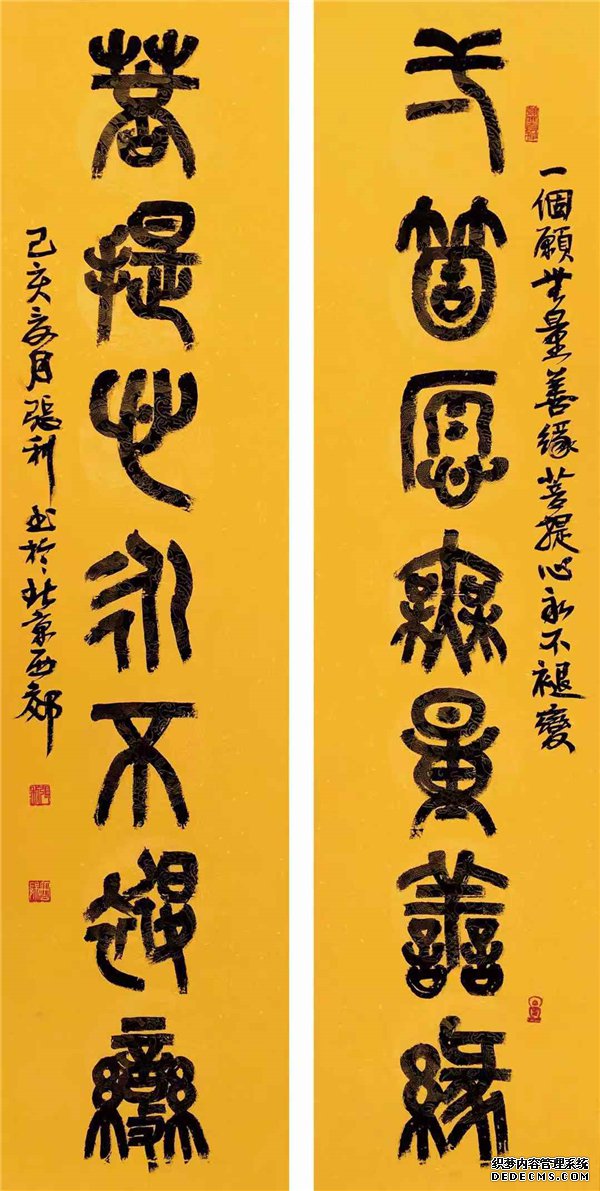 一個願無量善緣菩提心永不褪變
弌箇愿無量善緣
菩提心永不褪變
己亥亥月張利书於北京西郊
织梦内容管理系统
DEDECMS.COM